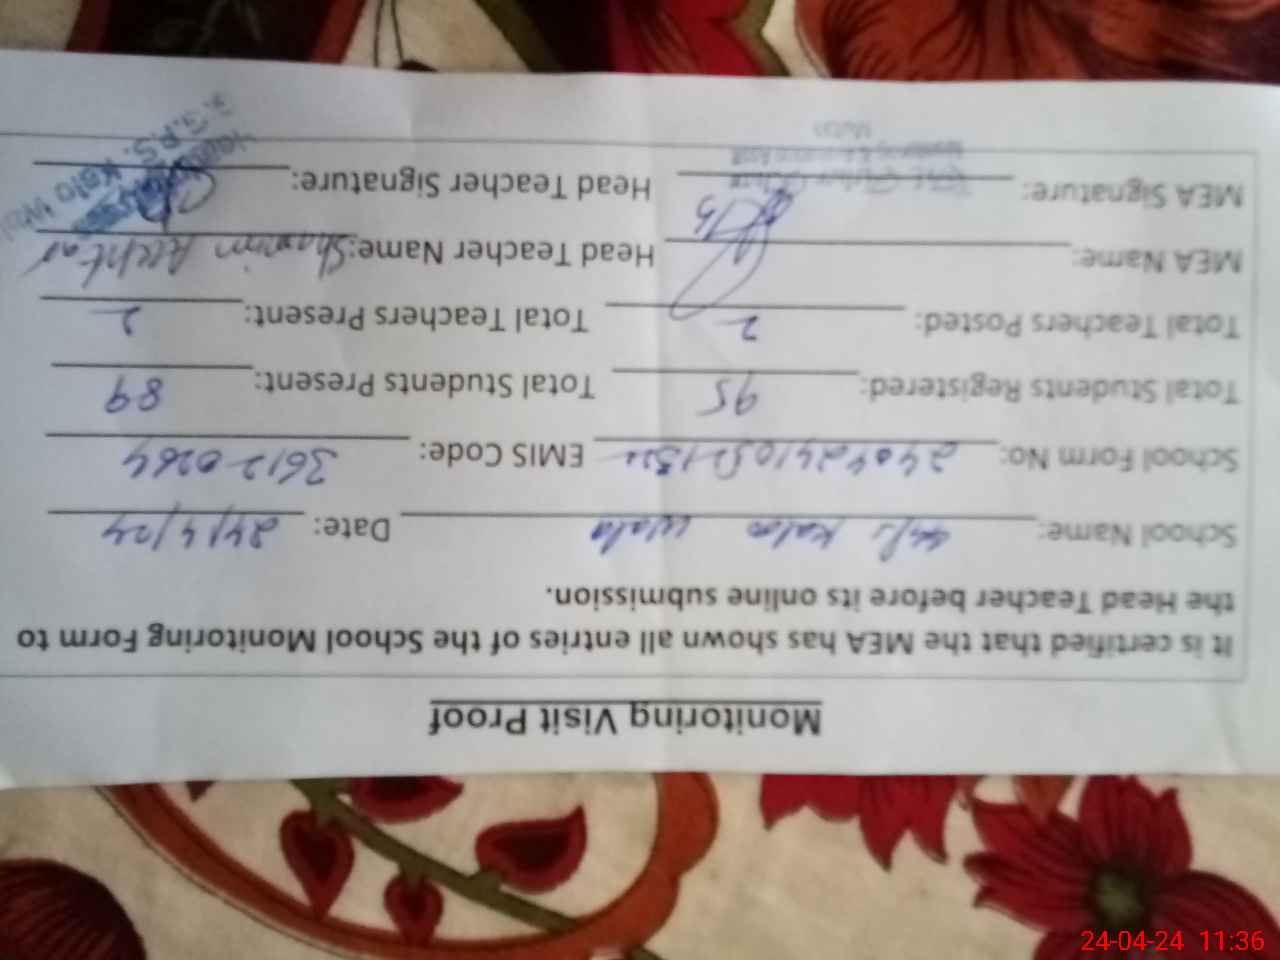 Monitoring Visit Proof
It is certified that the MEA has shown all entries of the School Monitoring Form to
the Head Teacher before its online submission.
School Name: Kaloo Wala Date: 24/4/24
School Form No: EMIS Code: 36120264
Total Students Registered: 95 Total Students Present: 89
Total Teachers Posted: 2 Total Teachers Present: 2
MEA Name: Head Teacher Name: Shamim Akhtar
MEA Signature: Head Teacher Signature:
24-04-24 11:36